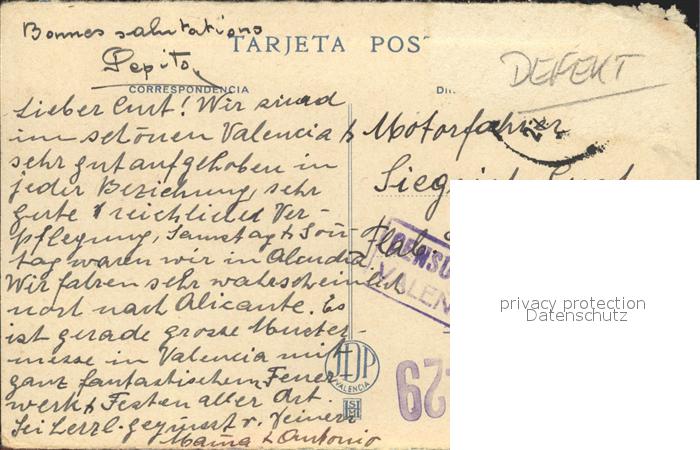 Bonnes salutations
Pepito
TARJETA POST
CORRESPONDENCIA
DEFEKT
Lieber Curt! Wir sind
im schönen Valencia &
sehr gut aufgehoben in
jeder Beziehung, sehr
gute & reichliche Ver-
pflegung, Samstag & Sonn
tag waren wir in Alcudia
Wir fahren sehr wahrscheinlich
noch nach Alicante. Es
ist gerade grosse Muster-
messe in Valencia mit
ganz fantastischem Feuer
werk & Festen aller Art.
Sei herzl. gegrüsst v. Deiner
Mama & Antonio
Motorfahrer
Flab.
CENSU
VALEN
JDP
VALENCIA
29
privacy protection
Datenschutz